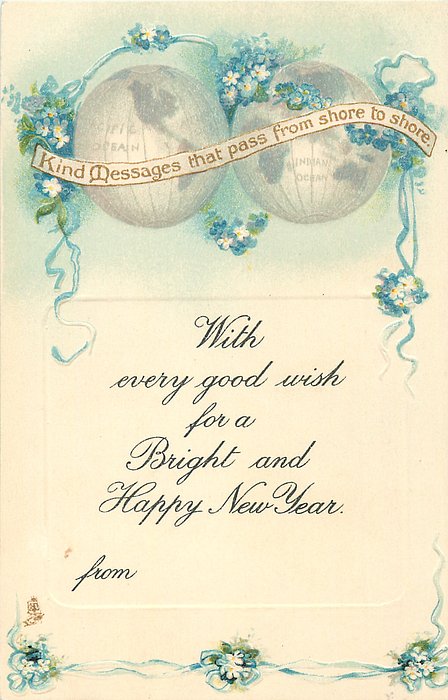 Kind Messages that pass from shore to shore.
PACIFIC
OCEAN
INDIAN
OCEAN
With
every good wish
for a
Bright and
Happy New Year.
from